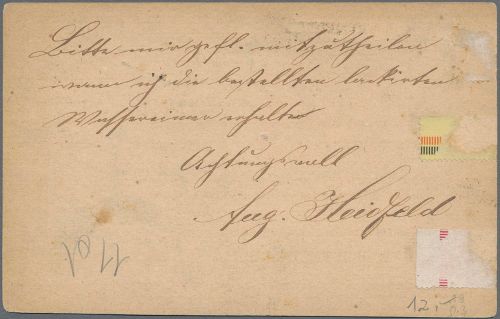 Bitte mir gefl. mitzutheilen
wann ich die bestellten lackirten
Wassereimer erhalte
Achtungsvoll
Aug. Heidfeld
1101
12,-